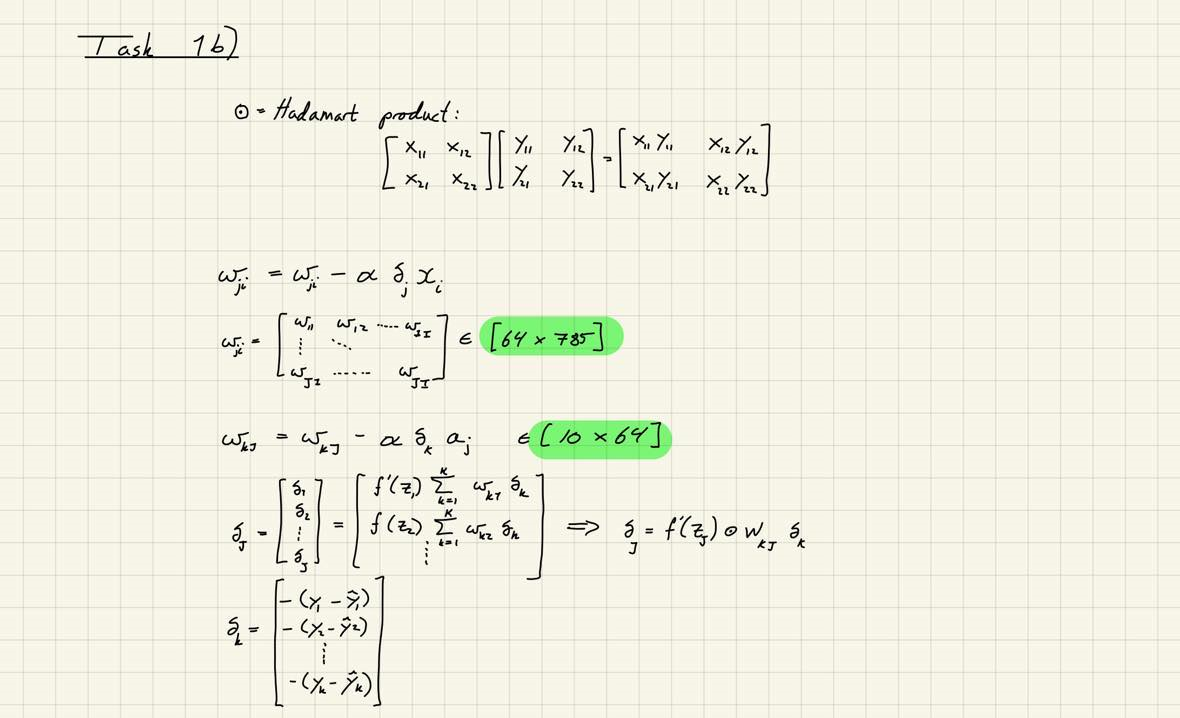 Task 1b)
⊙ = Hadamart product:
[ x₁₁ x₁₂ ; x₂₁ x₂₂ ] [ y₁₁ y₁₂ ; y₂₁ y₂₂ ] = [ x₁₁y₁₁ x₁₂y₁₂ ; x₂₁y₂₁ x₂₂y₂₂ ]
w_ji = w_ji - α δ_j x_i
w_ji = [ w₁₁ w₁₂ ..... w_1I ; ⋮ ⋱ ; w_J1 ...... w_JI ] ∈ [64 × 785]
w_kj = w_kj - α δ_k a_j ∈ [10 × 64]
δ_J = [ δ₁ ; δ₂ ; ⋮ ; δ_J ] = [ f'(z₁) Σ_{k=1}^{K} w_k1 δ_k ; f(z₂) Σ_{k=1}^{K} w_k2 δ_k ; ⋮ ] ⟹ δ_J = f'(z_J) ⊙ W_kJ δ_k
δ_k = [ -(y₁ - ŷ₁) ; -(y₂ - ŷ₂) ; ⋮ ; -(y_k - ŷ_k) ]